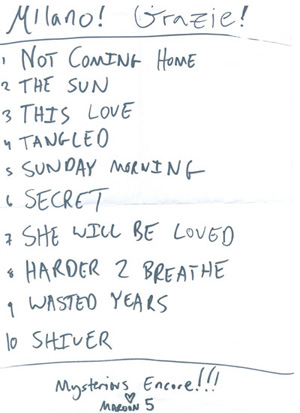 Milano! Grazie!
1 NOT COMING HOME
2 THE SUN
3 THIS LOVE
4 TANGLED
5 SUNDAY MORNING
6 SECRET
7 SHE WILL BE LOVED
8 HARDER 2 BREATHE
9 WASTED YEARS
10 SHIVER
Mysterious Encore!!!
MAROON 5